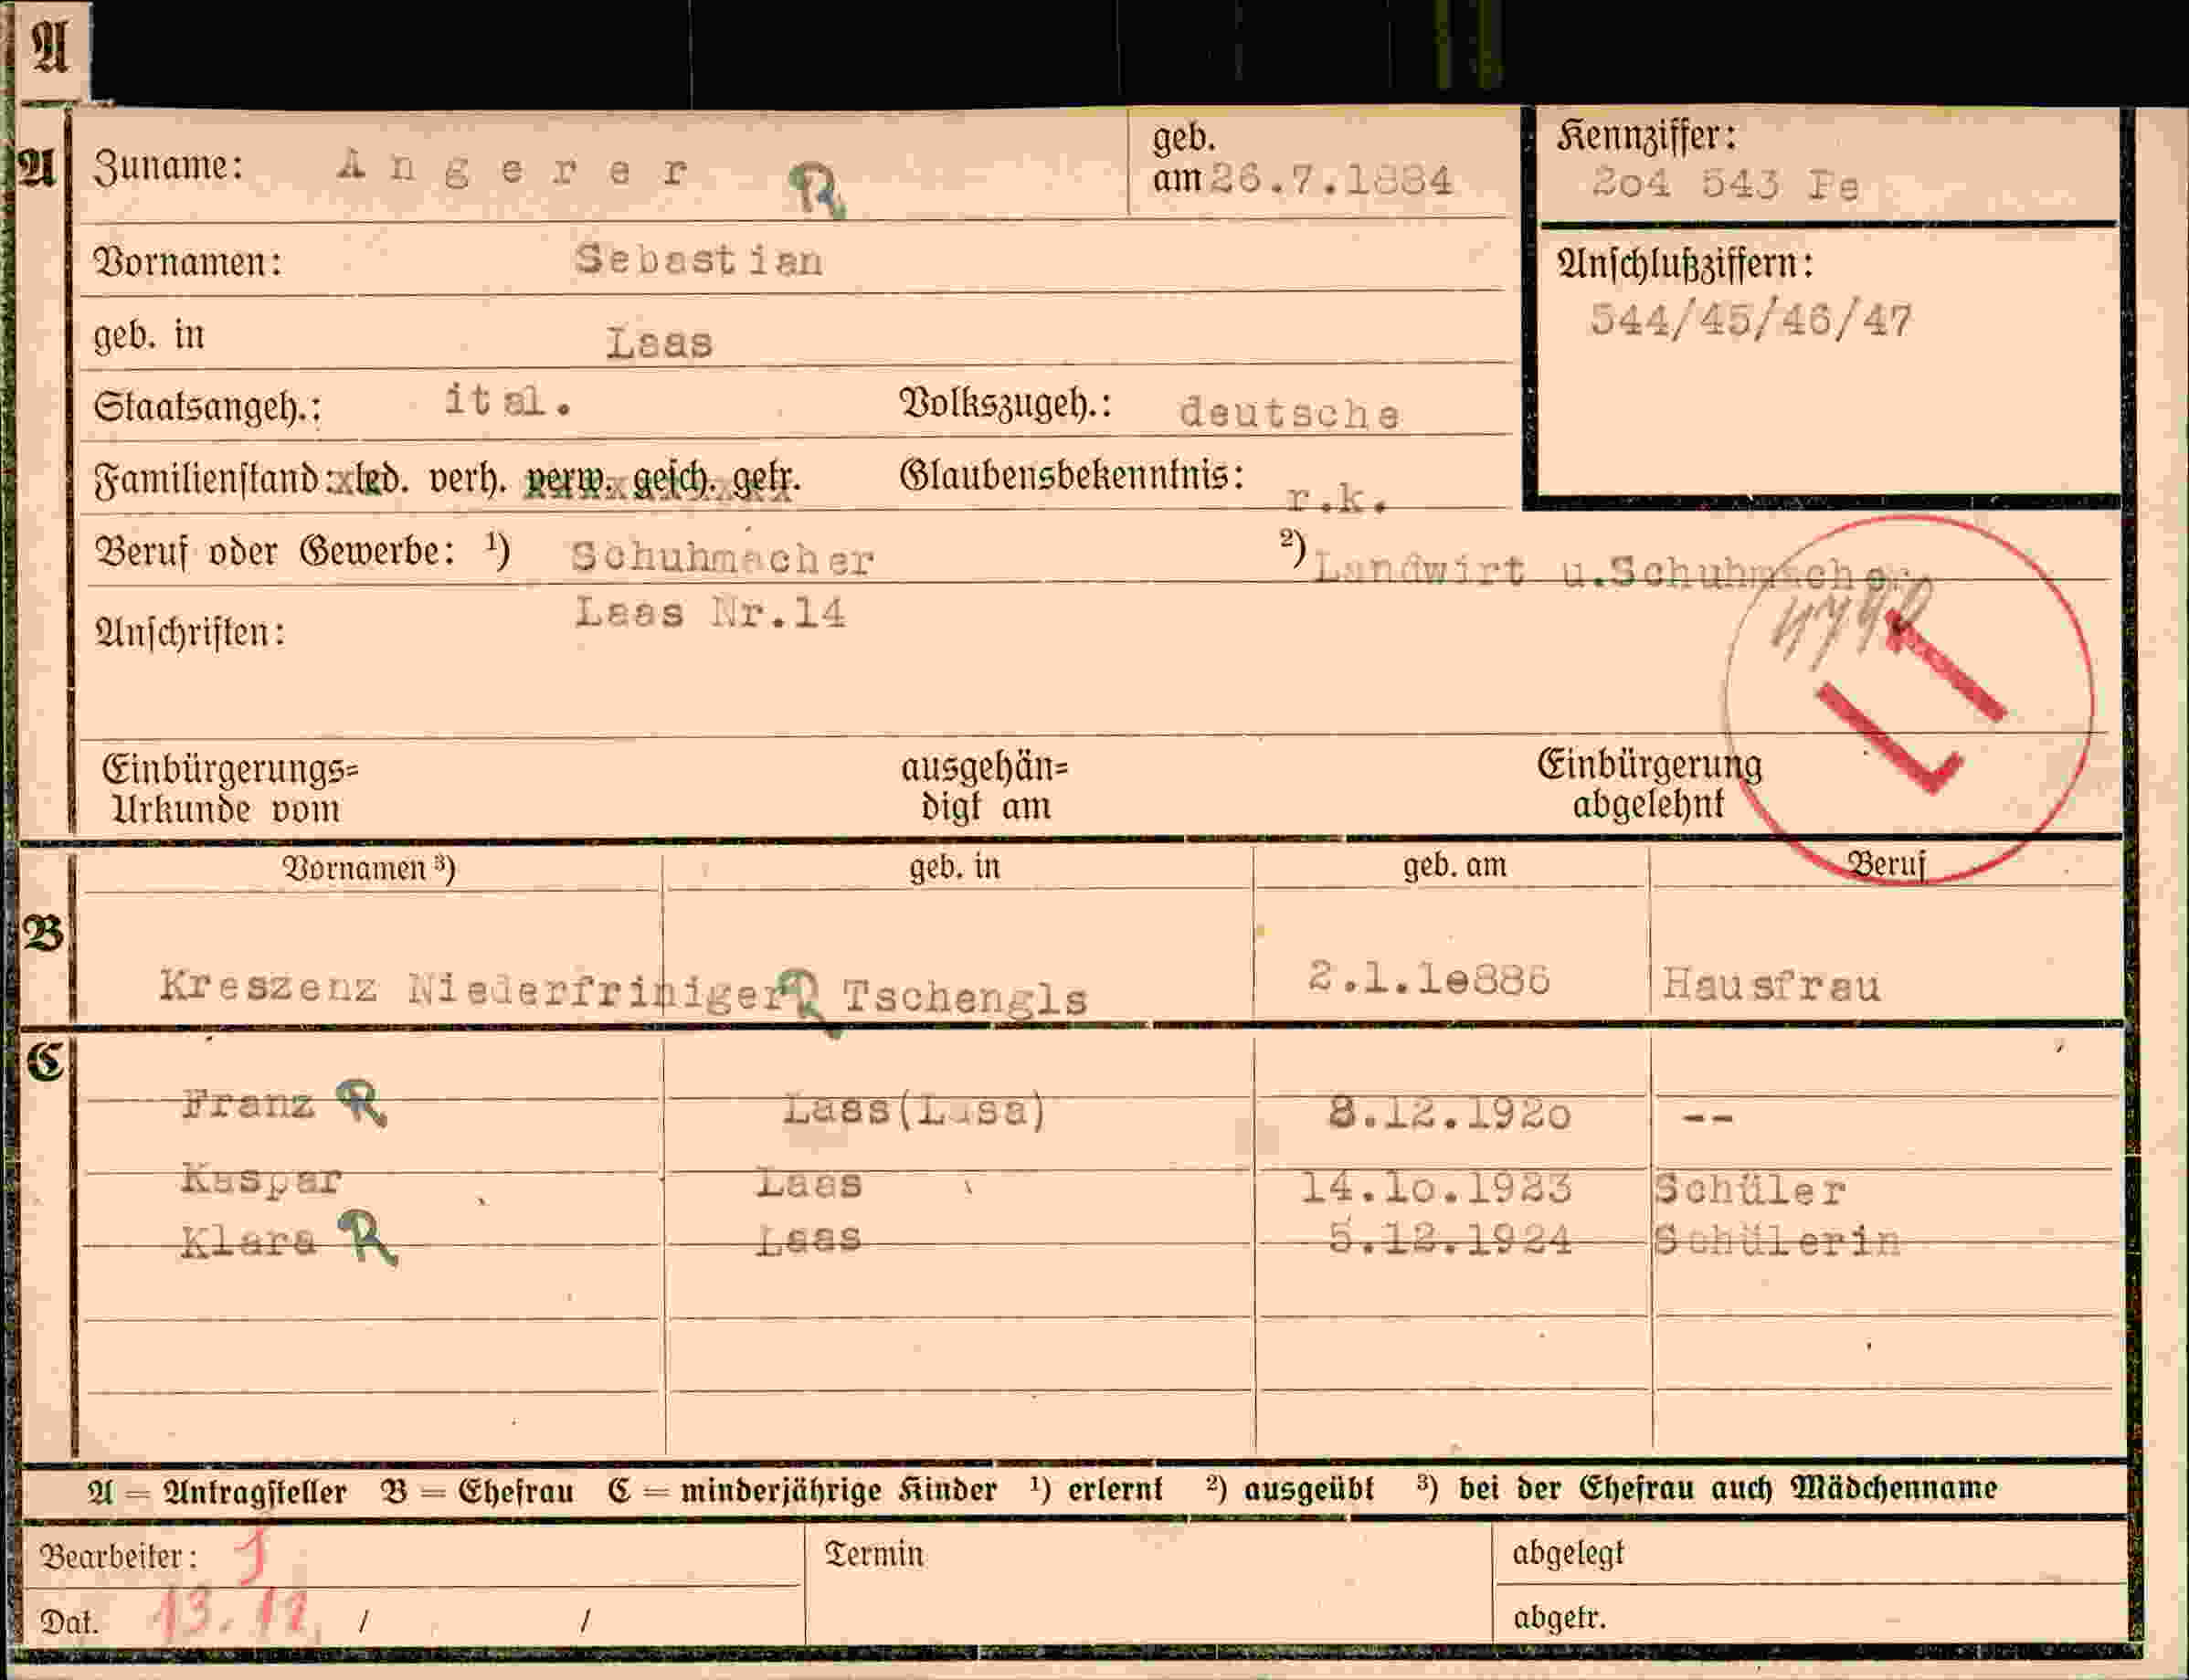 A
A Zuname: Angerer R geb. am 26.7.1884 Kennziffer: 2o4 543 Pe
Vornamen: Sebastian
Anschlußziffern:
544/45/46/47
geb. in Laas
Staatsangeh.: ital. Volkszugeh.: deutsche
Familienstand: led. verh. verw. gesch. getr. Glaubensbekenntnis: r.k.
Beruf oder Gewerbe: ¹) Schuhmacher ²) Landwirt u.Schuhmacher
Anschriften: Laas Nr.14
Einbürgerungs= ausgehän= Einbürgerung
Urkunde vom digt am abgelehnt
Vornamen ³) geb. in geb. am Beruf
B
Kreszenz Niederfriniger R Tschengls 2.1.1e886 Hausfrau
C
Franz R Laas(Lasa) 8.12.192o --
Kaspar Laas 14.1o.1923 Schüler
Klara R Laas 5.12.1924 Schülerin
A = Antragsteller B = Ehefrau C = minderjährige Kinder ¹) erlernt ²) ausgeübt ³) bei der Ehefrau auch Mädchenname
Bearbeiter: Termin abgelegt
Dat. 13.12. / / abgetr.